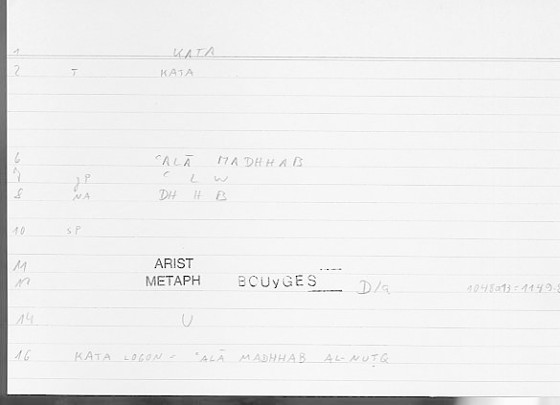 1 KATA
2 T KATA
6 ʿALĀ MADHHAB
7 gP ʿ L W
8 NA DH H B
10 SP
11 ARIST
METAPH BOUyGES D/a
14 U
16 KATA LOGON = ʿALĀ MADHHAB AL-NUṬQ